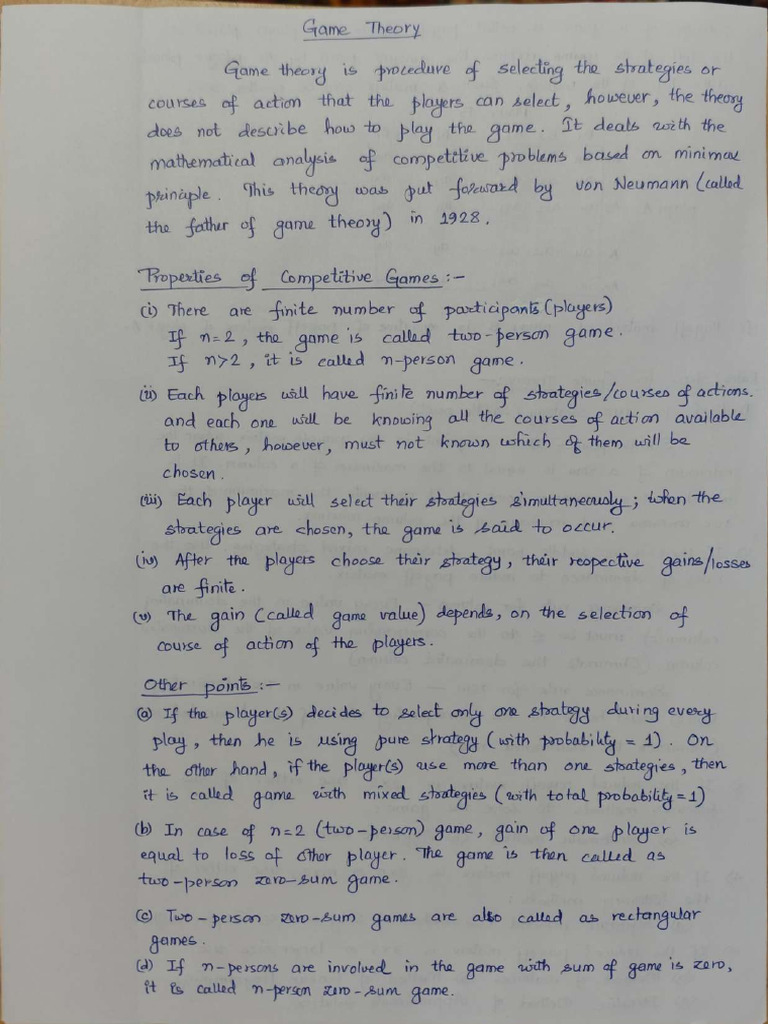 Game Theory
Game theory is procedure of selecting the strategies or
courses of action that the players can select, however, the theory
does not describe how to play the game. It deals with the
mathematical analysis of competitive problems based on minimax
principle. This theory was put forward by von Neumann (called
the father of game theory) in 1928.
Properties of Competitive Games :-
(i) There are finite number of participants (players)
If n=2, the game is called two-person game.
If n>2, it is called n-person game.
(ii) Each players will have finite number of strategies/courses of actions.
and each one will be knowing all the courses of action available
to others, however, must not known which of them will be
chosen.
(iii) Each player will select their strategies simultaneously; when the
strategies are chosen, the game is said to occur.
(iv) After the players choose their strategy, their respective gains/losses
are finite.
(v) The gain (called game value) depends, on the selection of
course of action of the players.
Other points :-
(a) If the player(s) decides to select only one strategy during every
play, then he is using pure strategy (with probability = 1). On
the other hand, if the player(s) use more than one strategies, then
it is called game with mixed strategies (with total probability=1)
(b) In case of n=2 (two-person) game, gain of one player is
equal to loss of other player. The game is then called as
two-person zero-sum game.
(c) Two-person zero-sum games are also called as rectangular
games.
(d) If n-persons are involved in the game with sum of game is zero,
it is called n-person zero-sum game.